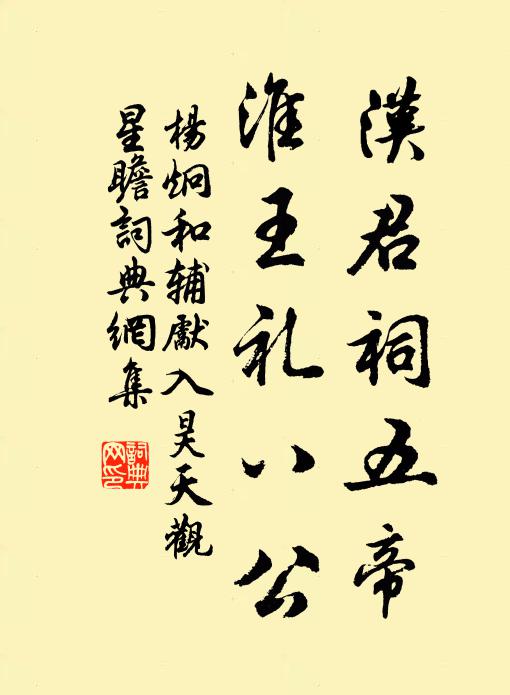 漢君祠五帝
淮王礼八公
楊炯和辅獻入昊天觀
星瞻詞典網集
詞典
网印